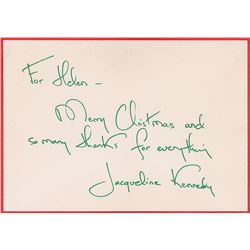 For Helen –
Merry Christmas and
so many thanks for everything
Jacqueline Kennedy